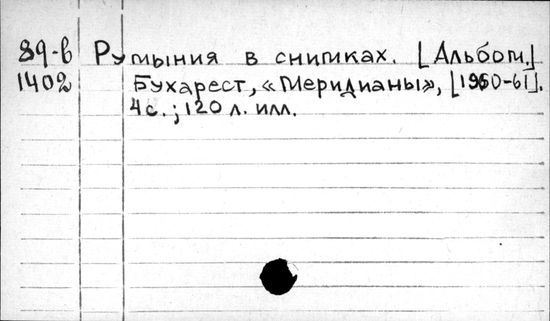 89-в Румыния в снимках. [Альбом.]
1402 Бухарест, «Меридианы», [1960-61].
4 с.; 120 л. илл.